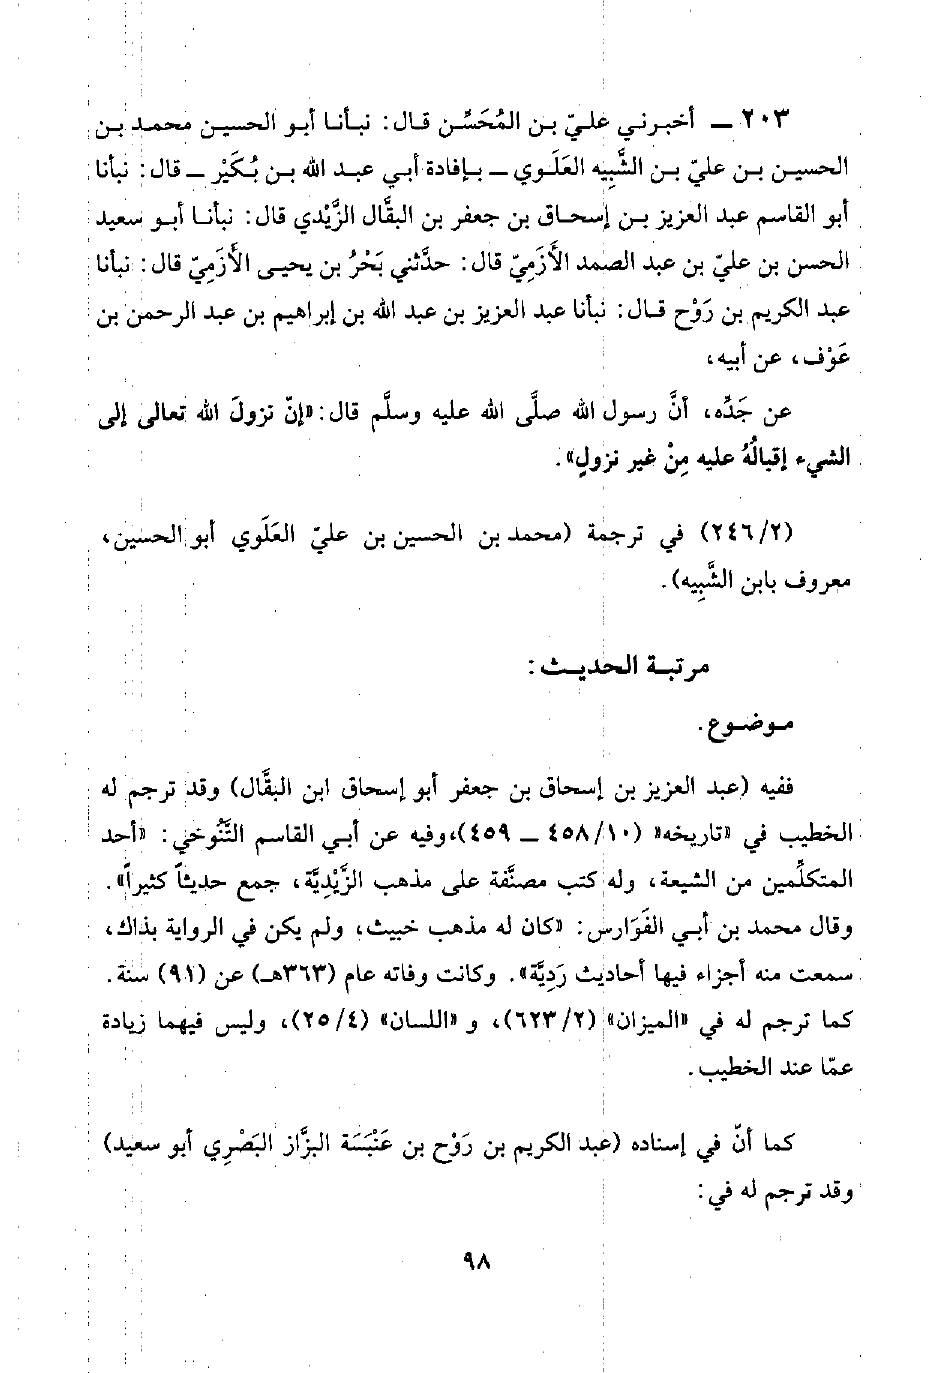 ٢٠٣ — أخبرني عليّ بن المُحَسِّن قال: نبأنا أبو الحسين محمد بن
الحسين بن عليّ بن الشَّبِيه العَلَوي — بإفادة أبي عبد الله بن بُكَيْر — قال: نبأنا
أبو القاسم عبد العزيز بن إسحاق بن جعفر بن البقَّال الزَّيْدي قال: نبأنا أبو سعيد
الحسن بن عليّ بن عبد الصمد الأَزَمِيّ قال: حدَّثني بَحْرُ بن يحيى الأَزَمِيّ قال: نبأنا
عبد الكريم بن رَوْح قال: نبأنا عبد العزيز بن عبد الله بن إبراهيم بن عبد الرحمن بن
عَوْف، عن أبيه،
عن جَدِّه، أنَّ رسول الله صلَّى الله عليه وسلَّم قال: «إنّ نزولَ الله تعالى إلى
الشيء إقبالُهُ عليه مِنْ غير نزولٍ».
(٢٤٦/٢) في ترجمة (محمد بن الحسين بن عليّ العَلَوي أبو الحسين،
معروف بابن الشَّبِيه).
مرتبة الحديث:
موضوع.
ففيه (عبد العزيز بن إسحاق بن جعفر أبو إسحاق ابن البقَّال) وقد ترجم له
الخطيب في «تاريخه» (٤٥٨/١٠ — ٤٥٩)، وفيه عن أبي القاسم التَّنُوخي: «أحد
المتكلِّمين من الشيعة، وله كتب مصنَّفة على مذهب الزَّيْدِيَّة، جمع حديثاً كثيراً».
وقال محمد بن أبي الفَوَارس: «كان له مذهب خبيث، ولم يكن في الرواية بذاك،
سمعت منه أجزاء فيها أحاديث رَدِيَّة». وكانت وفاته عام (٣٦٣هـ) عن (٩١) سنة.
كما ترجم له في «الميزان» (٦٢٣/٢)، و «اللسان» (٢٥/٤)، وليس فيهما زيادة
عمّا عند الخطيب.
كما أنّ في إسناده (عبد الكريم بن رَوْح بن عَنْبَسَة البزَّاز البَصْرِي أبو سعيد)
وقد ترجم له في:
٩٨